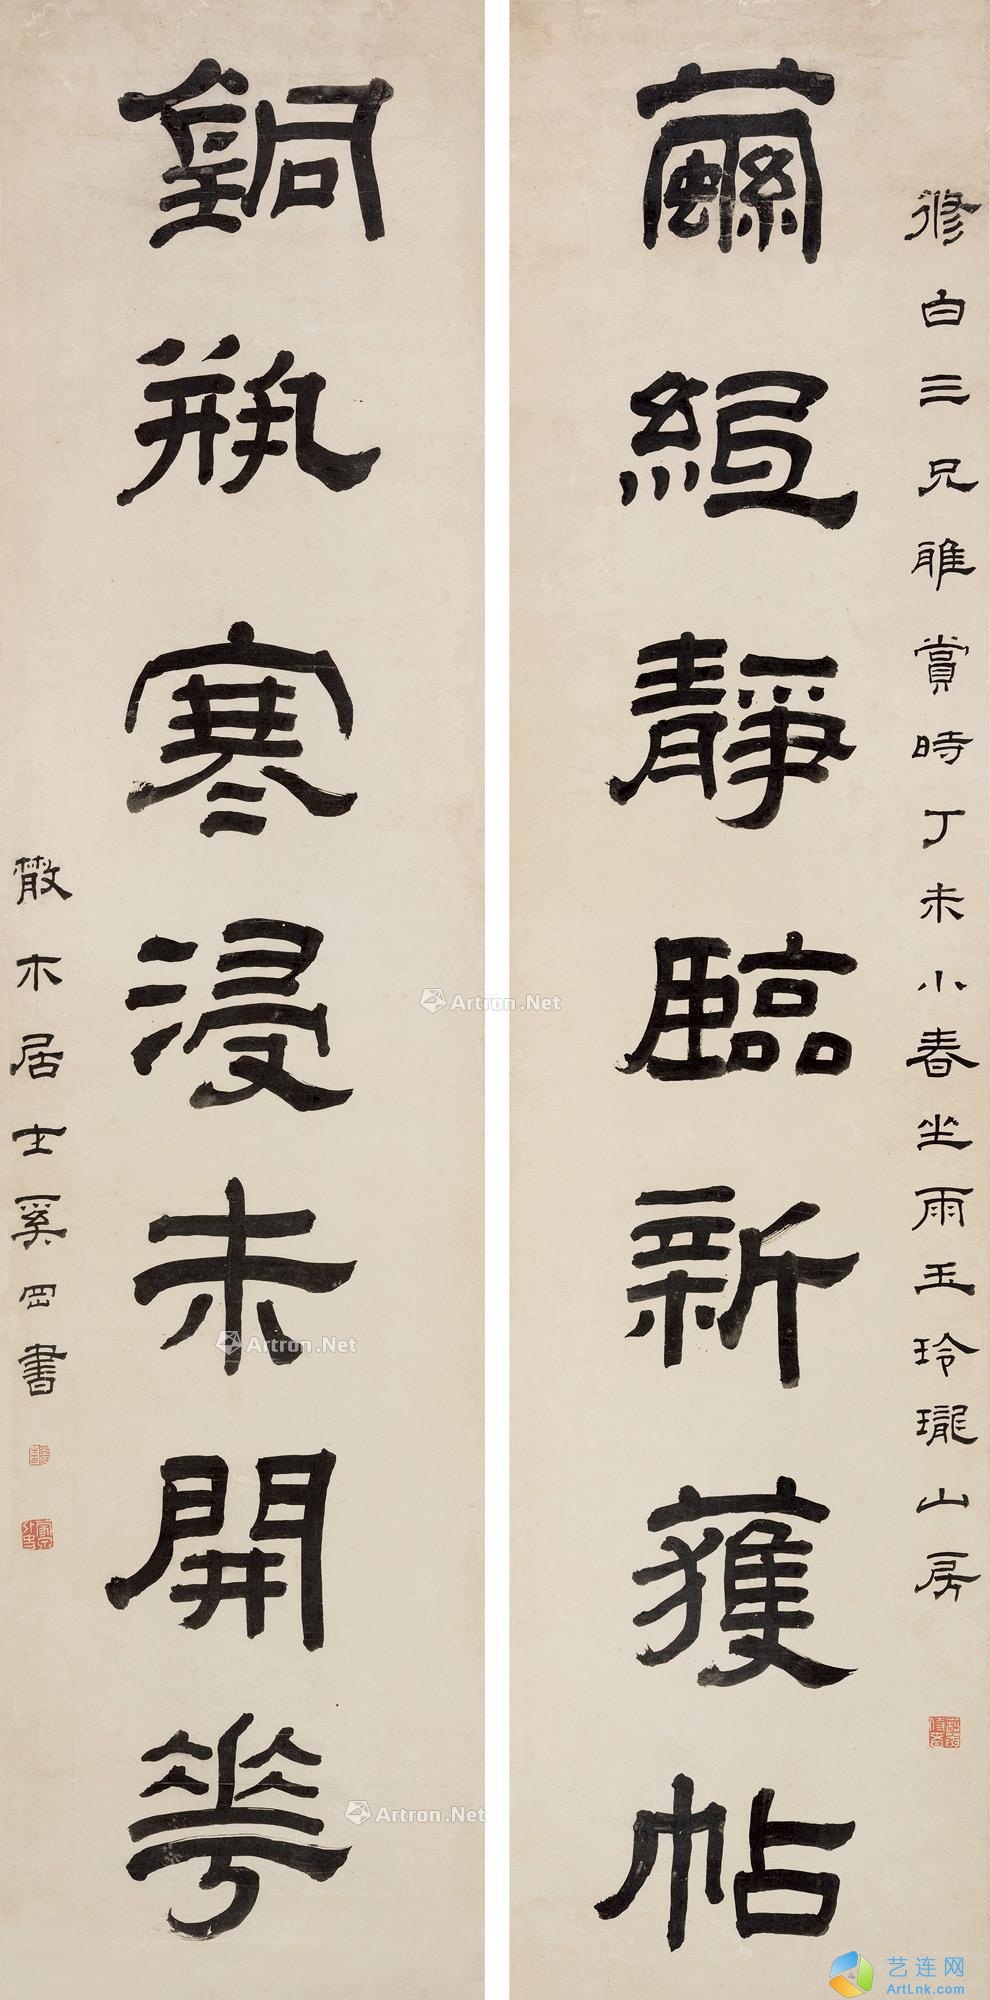 修白三兄雅賞時丁未小春坐雨玉玲瓏山房
繭紙靜臨新獲帖
銅瓶寒浸未開華
散木居士奚岡書
Artron.Net
Artron.Net
Artron.Net
Artron.Net
艺连网
ArtLnk.com